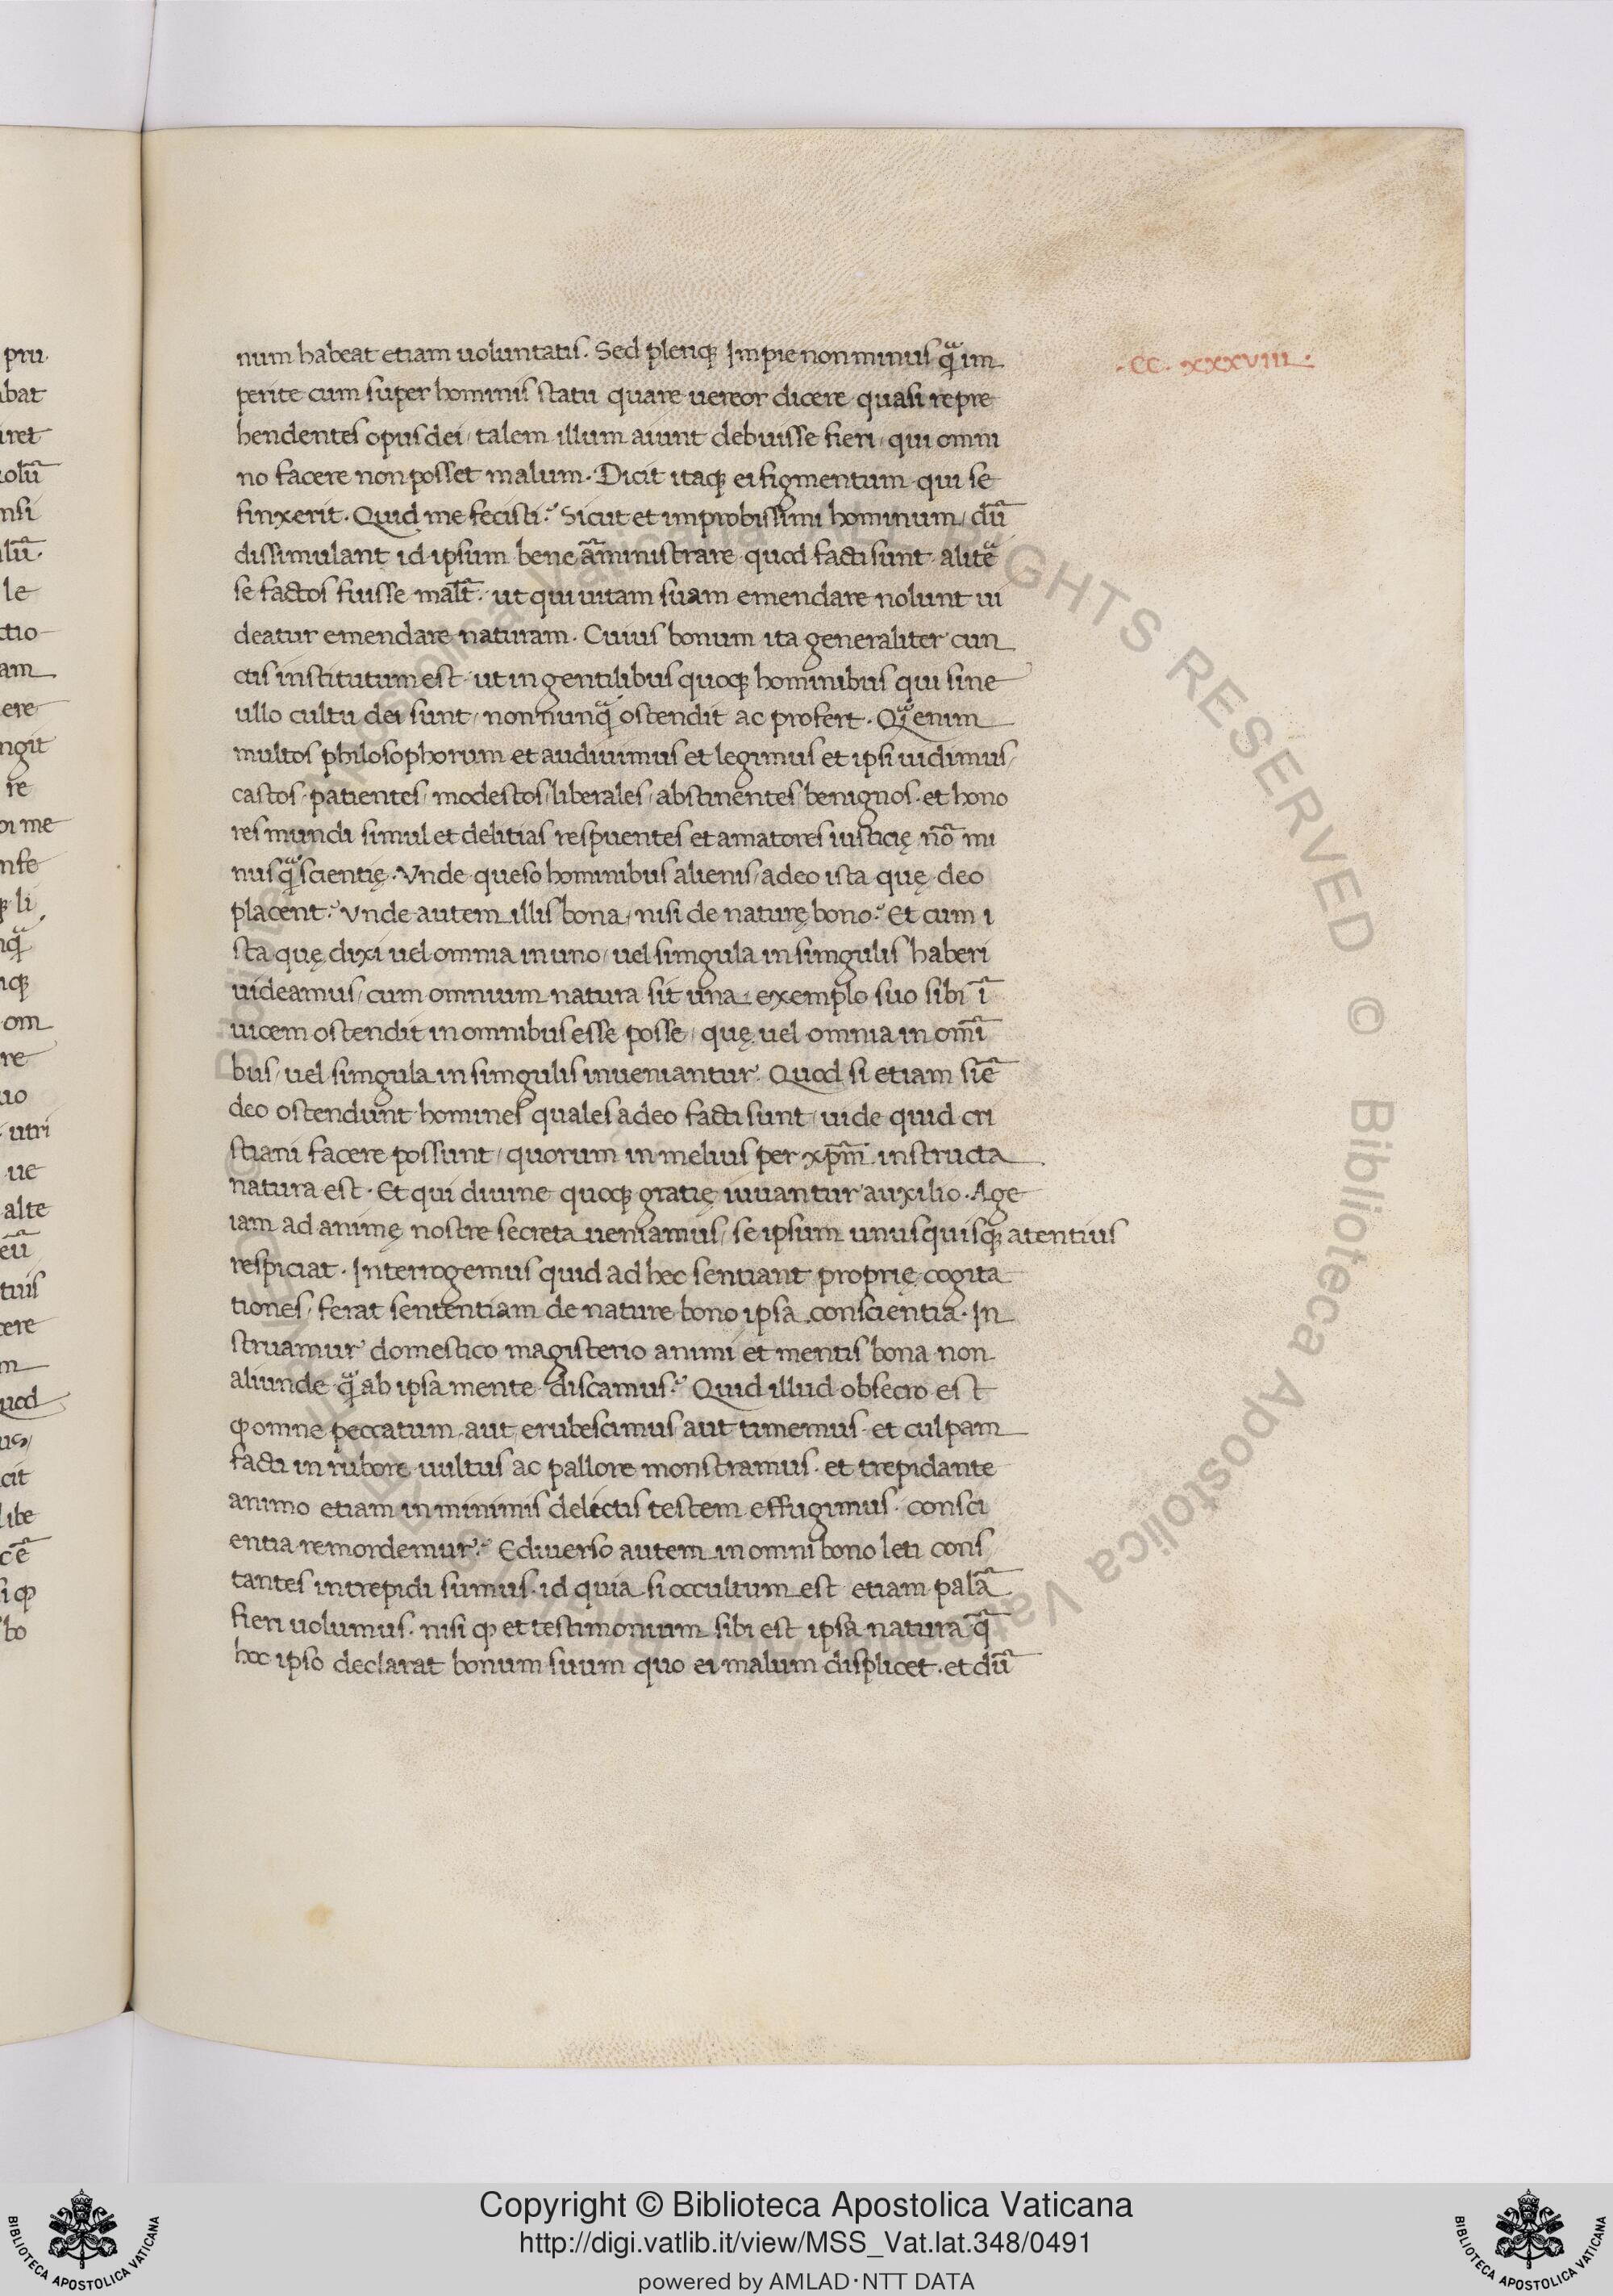 .CC. XXXVIII.
num habeat etiam uoluntatis. Sed pleriqꝫ Impie non minus qᷓ im
perite cum super hominis statu quare uereor dicere quasi repre
hendentes opus dei / talem illum aiunt debuisse fieri / qui omni
no facere non posset malum. Dicit itaqꝫ ei figmentum qui se
finxerit. Quid me fecisti? Sicut et improbissimi hominum / dū
dissimulant id ipsum bene āministrare quod facti sunt alitē
se factos fuisse mal̄t. ut qui uitam suam emendare nolunt ui
deatur emendare naturam. Cuius bonum ita generaliter cun
ctis institutum est ut in gentilibus quoqꝫ hominibus qui sine
ullo cultu dei sunt / non nunqᷓ ostendit ac profert. Qᷓ enim
multos philosophorum et audiuimus et legimus et ipsi uidimus /
castos / patientes / modestos / liberales / abstinentes / benignos. et hono
res mundi simul et delitias respuentes et amatores iusticię nō mi
nus qᷓ scientię. Vnde queso hominibus alienis / adeo ista quę deo
placent? Vnde autem illis bona / nisi de naturę bono? Et cum i
sta quę dixi uel omnia in uno / uel simgula in simgulis haberi
uideamus / cum omnium natura sit una exemplo suo sibi ī
uicem ostendit in omnibus esse posse / quę uel omnia in om̄i
bus / uel simgula in simgulis inueniantur. Quod si etiam siē
deo ostendunt homines quales adeo facti sunt / uide quid cri
stiani facere possunt / quorum in melius per xp̄m instructa
natura est. Et qui diuine quoqꝫ gratię iuuantur auxilio. Age
iam ad animę nostre secreta ueniamus / se ipsum unusquisqꝫ atentius
respiciat. Interrogemus quid ad hec sentiant proprię cogita
tiones / ferat sententiam de nature bono ipsa conscientia. In
struamur domestico magisterio animi et mentis bona non
aliunde qᷓ ab ipsa mente discamus? Quid illud obsecro est
ꝙ omne peccatum aut erubescimus aut timemus. et culpam
facti in rubore uultus ac pallore monstramus. et trepidante
animo etiam in minimis delictis testem effugimus. consci
entia remordemur? Ediuerso autem in omni bono leti cons
tantes intrepidi sumus. id quia si occultum est etiam palā
fieri uolumus. nisi ꝙ et testimonium sibi est ipsa natura qᷓ
hoc ipso declarat bonum suum quo ei malum displicet. et dū
pru
bat
olū
nsi
lū.
le
ctio
am
ere
ngit
re
nqᷓ
om
re
utri
ue
alte
eū
tuis
uod
cit
cē
bo
Copyright © Biblioteca Apostolica Vaticana
http://digi.vatlib.it/view/MSS_Vat.lat.348/0491
powered by AMLAD·NTT DATA
BIBLIOTECA APOSTOLICA VATICANA
BIBLIOTECA APOSTOLICA VATICANA